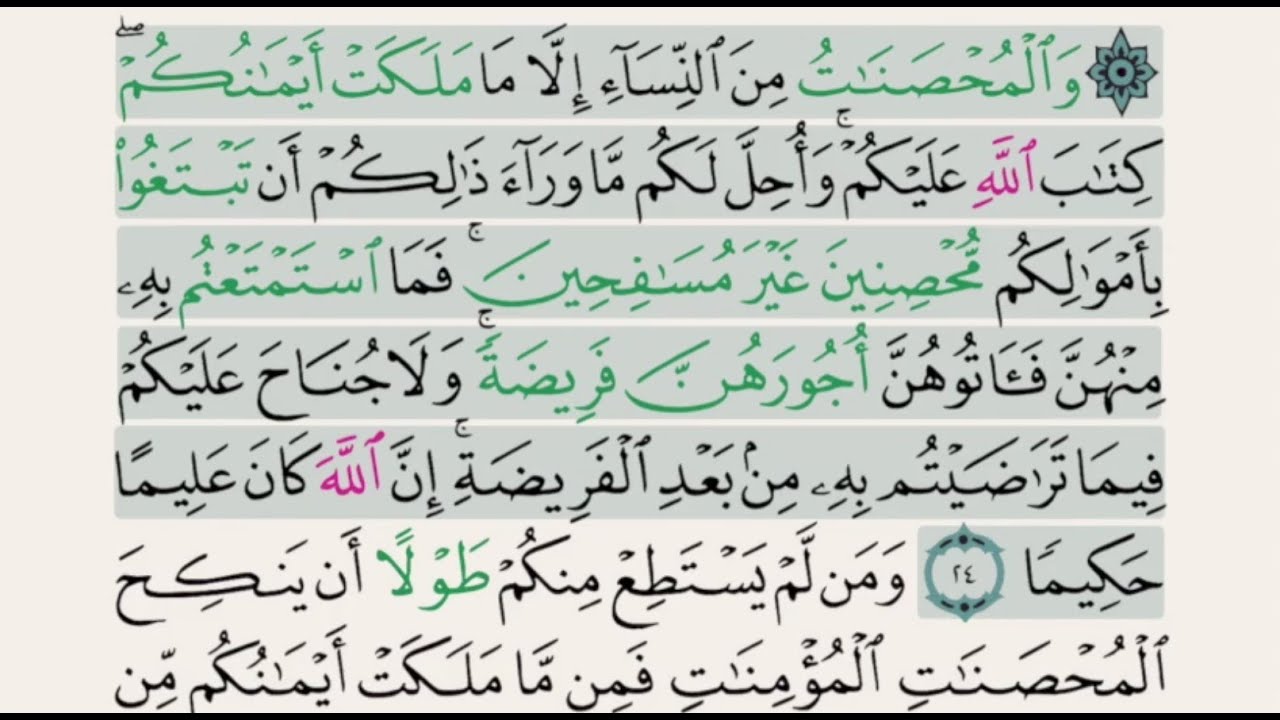 وَٱلْمُحْصَنَـٰتُ مِنَ ٱلنِّسَآءِ إِلَّا مَا مَلَكَتْ أَيْمَـٰنُكُمْ ۖ
كِتَـٰبَ ٱللَّهِ عَلَيْكُمْ ۚ وَأُحِلَّ لَكُم مَّا وَرَآءَ ذَٰلِكُمْ أَن تَبْتَغُوا۟
بِأَمْوَٰلِكُم مُّحْصِنِينَ غَيْرَ مُسَـٰفِحِينَ ۚ فَمَا ٱسْتَمْتَعْتُم بِهِۦ
مِنْهُنَّ فَـَٔاتُوهُنَّ أُجُورَهُنَّ فَرِيضَةً ۚ وَلَا جُنَاحَ عَلَيْكُمْ
فِيمَا تَرَٰضَيْتُم بِهِۦ مِنۢ بَعْدِ ٱلْفَرِيضَةِ ۚ إِنَّ ٱللَّهَ كَانَ عَلِيمًا
حَكِيمًا ٢٤ وَمَن لَّمْ يَسْتَطِعْ مِنكُمْ طَوْلًا أَن يَنكِحَ
ٱلْمُحْصَنَـٰتِ ٱلْمُؤْمِنَـٰتِ فَمِن مَّا مَلَكَتْ أَيْمَـٰنُكُم مِّن